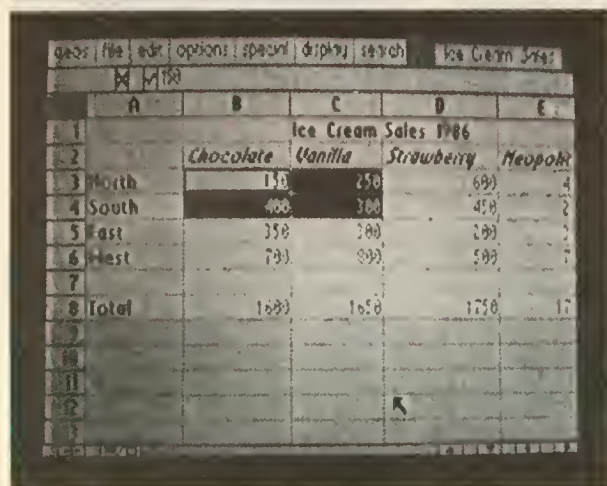 geos file edit options special display search Ice Cream Sales
150
A B C D E
1 Ice Cream Sales 1986
2 Chocolate Vanilla Strawberry Neopolit
3 North 150 250 600 4
4 South 400 300 450 2
5 East 350 300 200
6 West 700 800 500
7
8 Total 1600 1650 1750 17
9
10
11
12